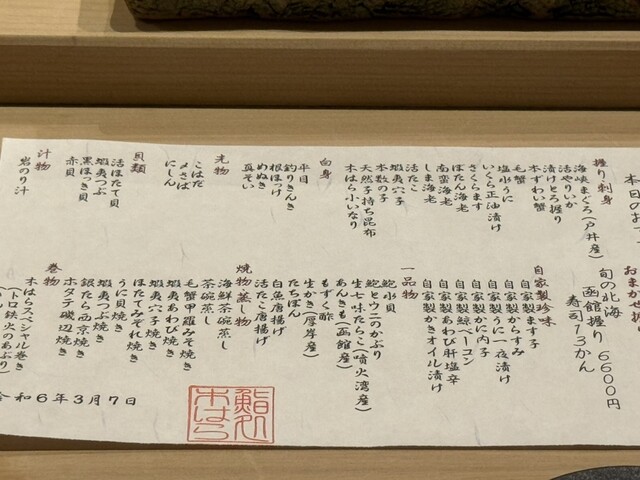 本日のお
握り・刺身
海峡まぐろ(戸井産)
活やりいか
漬けとろ握り
本ずわい蟹
毛蟹
塩水うに
いくら正油漬け
さくらます
ぼたん海老
南蛮海老
しま海老
活たこ
蝦夷穴子
本数の子
天然子持ち昆布
木はら小いなり
白身
平目
釣りきんき
根ぼっけ
めぬき
真ぞい
光物
こはだ
〆さば
にしん
貝類
活ほたて貝
蝦夷つぶ
黒ほっき貝
赤貝
汁物
岩のり汁
おまかせ握り
旬の北海
函館握り 6600円
寿司13かん
自家製珍味
自家製ます子
自家製からすみ
自家製うに一夜漬け
自家製かに内子
自家製鯨ベーコン
自家製あわび肝塩辛
自家製かきオイル漬け
一品物
鮑水貝
鮑とウニのかぶり
生七味たらこ(噴火湾産)
あんきも(函館産)
もずく酢
生かき(厚岸産)
たちぽん
白魚唐揚げ
活たこ唐揚げ
焼物・蒸し物
海鮮茶碗蒸し
茶碗蒸し
毛蟹甲羅みそ焼き
蝦夷あわび焼き
蝦夷穴子焼き
ほたてみぞれ焼き
うに貝焼き
蝦夷つぶ焼き
銀たら西京焼き
ホタテ磯辺焼き
巻物
木はらスペシャル巻き
(トロ鉄火のあぶり)
令和6年3月7日
鮨処
木はら